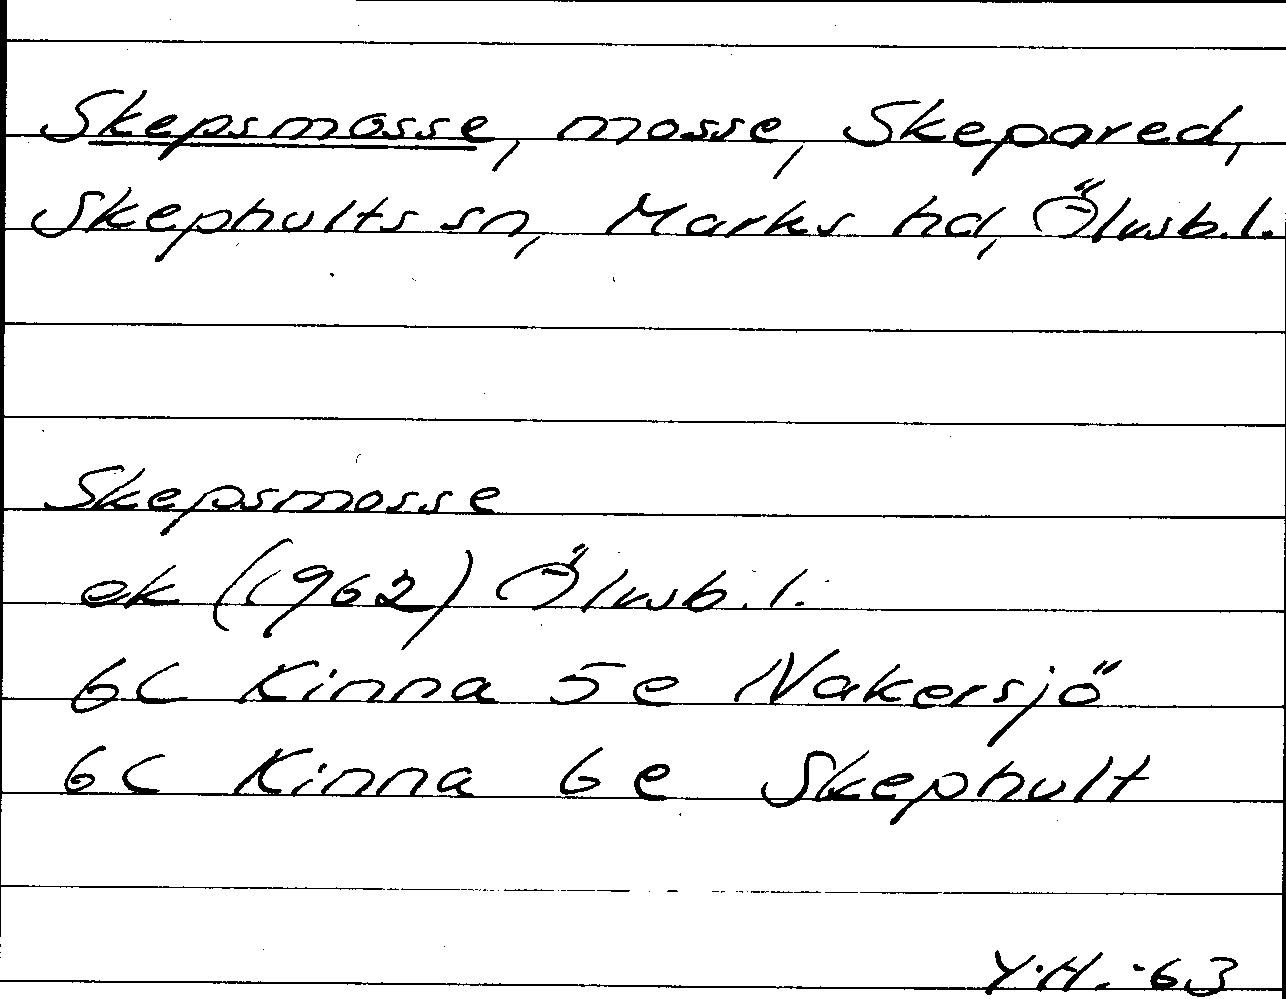 Skepsmosse, mosse, Skepared,
Skephults sn, Marks hd, Älvsb.l.
Skepsmosse
ek (1962) Älvsb.l.
6C Kinna 5e Nakersjö
6C Kinna 6e Skephult
Y.H. -63